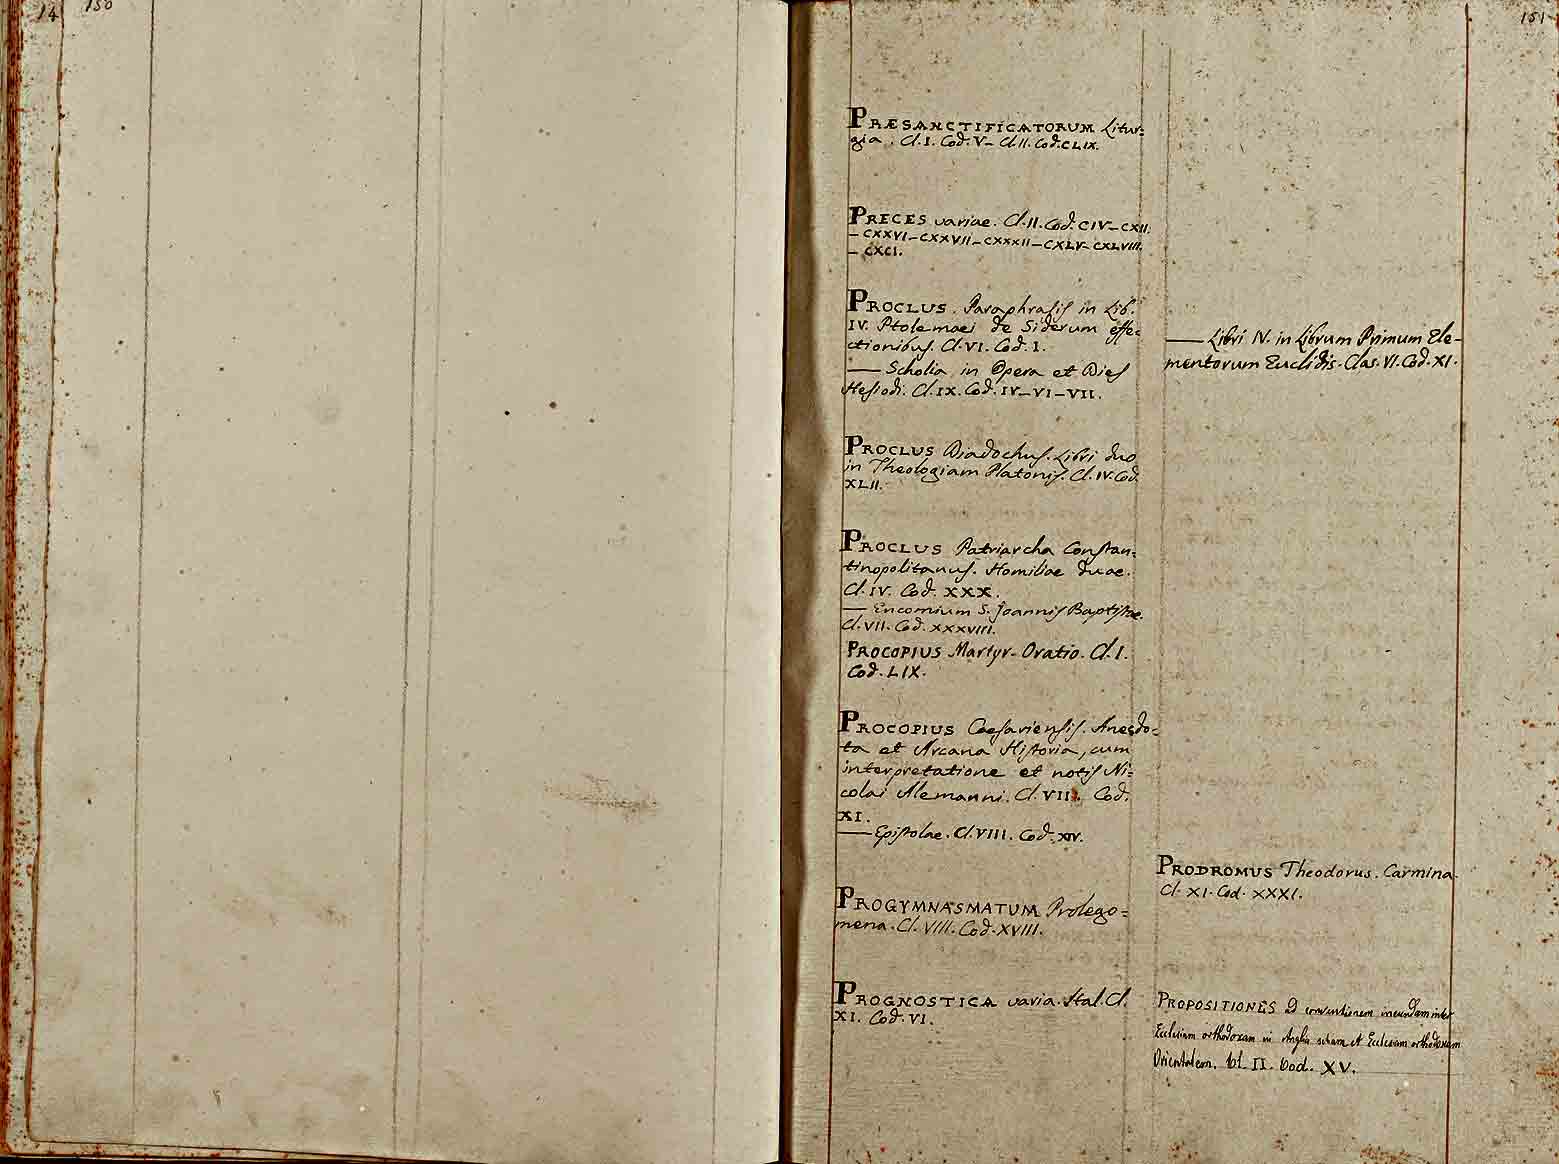 14
150
151
PRÆSANCTIFICATORUM Litur=
gia. Cl. I. Cod. V– Cl. II. Cod. CLIX.
PRECES variae. Cl. II. Cod. CIV–CXII.
– CXXVI–CXXVII–CXXXII–CXLV–CXLVIII.
– CXCI.
PROCLUS. Paraphrasis in Lib.
IV. Ptolemaei de Siderum effe=
ctionibus. Cl. VI. Cod. I.
—— Scholia in Opera et Dies
Hesiodi. Cl. IX. Cod. IV–VI–VII.
PROCLUS Diadochus. Libri duo
in Theologiam Platonis. Cl. IV. Cod.
XLII.
PROCLUS Patriarcha Constan=
tinopolitanus. Homiliae duae.
Cl. IV. Cod. XXX.
—— Encomium S. Joannis Baptistae.
Cl. VII. Cod. XXXVIII.
PROCOPIUS Martyr. Oratio. Cl. I.
Cod. LIX.
PROCOPIUS Caesariensis. Anecdo=
ta et Arcana Historia, cum
interpretatione et notis Ni=
colai Alemanni. Cl. VII. Cod.
XI.
—— Epistolae. Cl. VIII. Cod. XIV.
PROGYMNASMATUM Prolego=
mena. Cl. VIII. Cod. XVIII.
PROGNOSTICA varia. Ital. Cl.
XI. Cod. VI.
—— Libri IV. in Librum Primum Ele–
mentorum Euclidis. Clas. VI. Cod. XI.
PRODROMUS Theodorus. Carmina.
Cl. XI. Cod. XXXI.
PROPOSITIONES ad conventionem ineundam inter
Ecclesiam orthodoxam in Anglia sitam et Ecclesiam orthodoxam
Orientalem. Cl. II. Cod. XV.